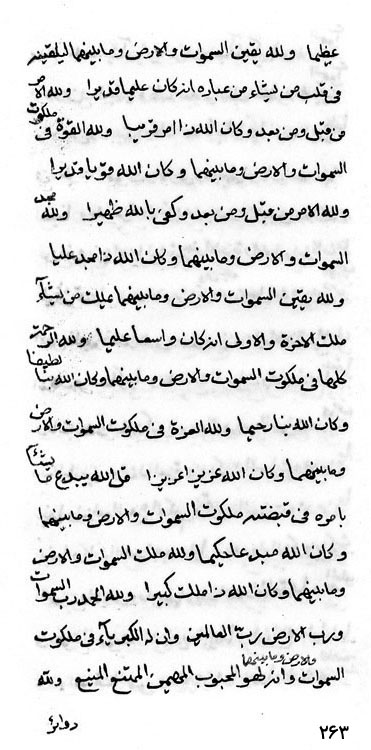 عظيما ولله يقين السموات والارض وما بينهما اليلقينه
فى قلب من يشاء من عباده انه كان عليما قديرا ولله الامر
من قبل ومن بعد وكان الله ذا امر قريبا ولله القوة فى ملكوت
السموات والارض وما بينهما وكان الله قويا قديرا
ولله الامر من قبل ومن بعد وكفى بالله ظهيرا ولله مجد
السموات والارض وما بينهما وكان الله ذا مجد عليا
ولله يقين السموات والارض وما بينهما يملك من يشآء
ملك الاخرة والاولى انه كان واسعا عليما ولله الرحمة
كلها فى ملكوت السموات والارض وما بينهما وكان الله بنا لطيفا
وكان الله بنا رحيما ولله العزة فى ملكوت السموات والارض
وما بينهما وكان الله عزيزا عزيزا قل الله يبدع ما يشآء
بامره فى قبضته ملكوت السموات والارض وما بينهما
وكان الله عليكما ولله ملك السموات والارض
وما بينهما وكان الله ذا ملك كبيرا ولله الحمد رب السموات
ورب الارض رب العالمين وان له الكبريآء فى ملكوت
السموات والارض وما بينهما وانه لهو المحبوب المهيمن الممتنع المنيع ولله
٢٦٣